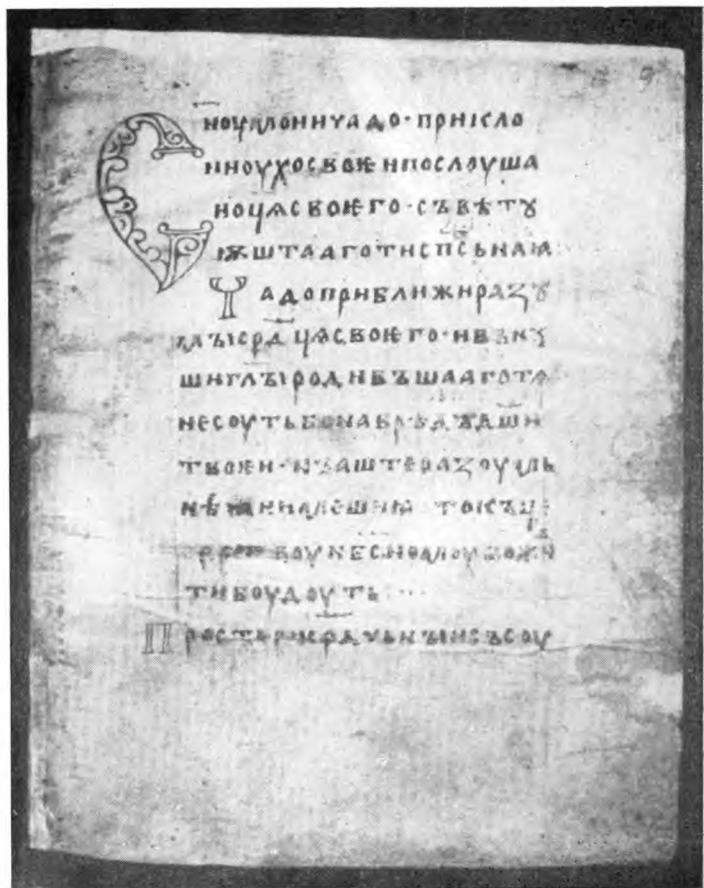 Сноу мои и чадо · приклo
ни оухо своѥ и послоуша
и оцѧ своѥго · съвѣтꙋ
ѭштааго ти спсьнаꙗ
Чадо приближи разꙋ
мъі срдцѧ своѥго · и вънꙋ
ши глъі родивъшааго тѧ
не соуть бо на врѣдъ дши
твоѥи · нъ аште разоумь
нѣ то къ
боу небесноумоу вожи
ти боудоуть
Простьри срдчьнъіи съсоу